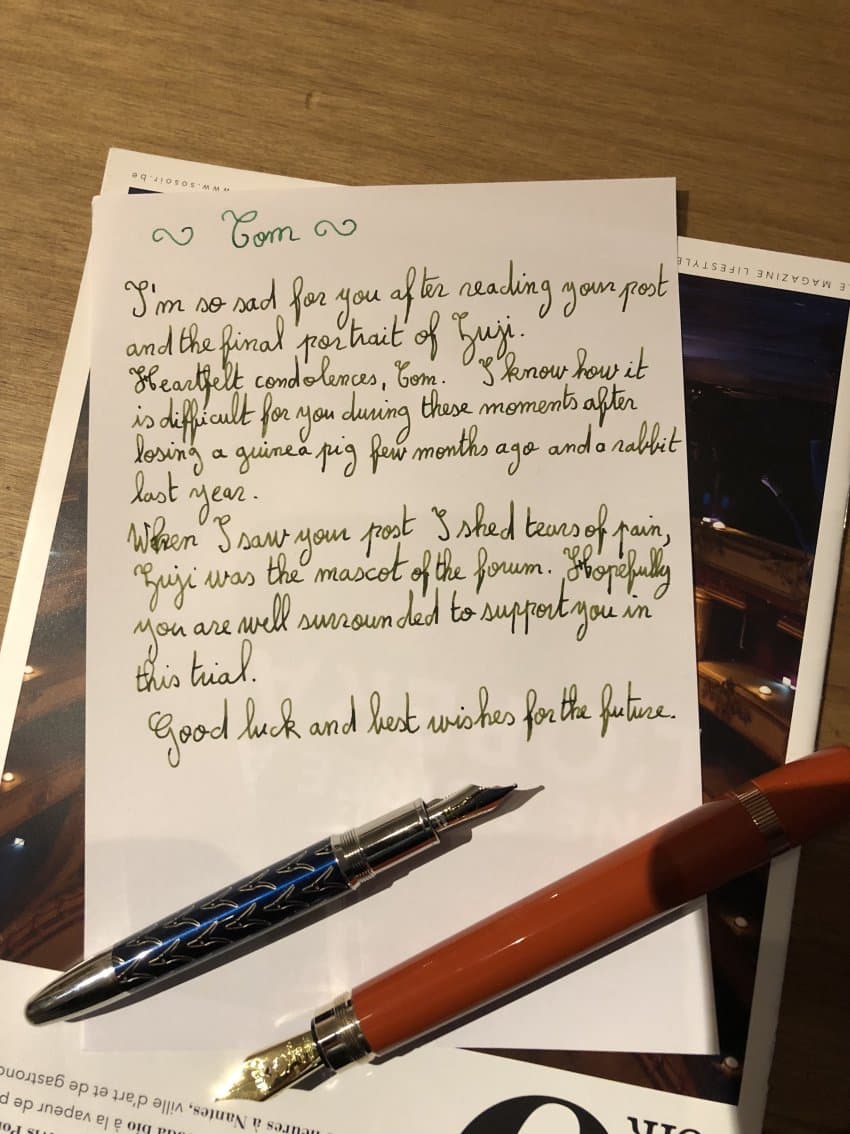 www.sosoir.be
LE MAGAZINE LIFESTYLE
~ Tom ~
I'm so sad for you after reading your post
and the final portrait of Zuji.
Heartfelt condolences, Tom. I know how it
is difficult for you during these moments after
losing a guinea pig few months ago and a rabbit
last year.
When I saw your post I shed tears of pain,
Zuji was the mascot of the forum. Hopefully
you are well surrounded to support you in
this trial.
Good luck and best wishes for the future.
heures à Nantes, ville d'art et de gastrono
bio à la vapeur de p